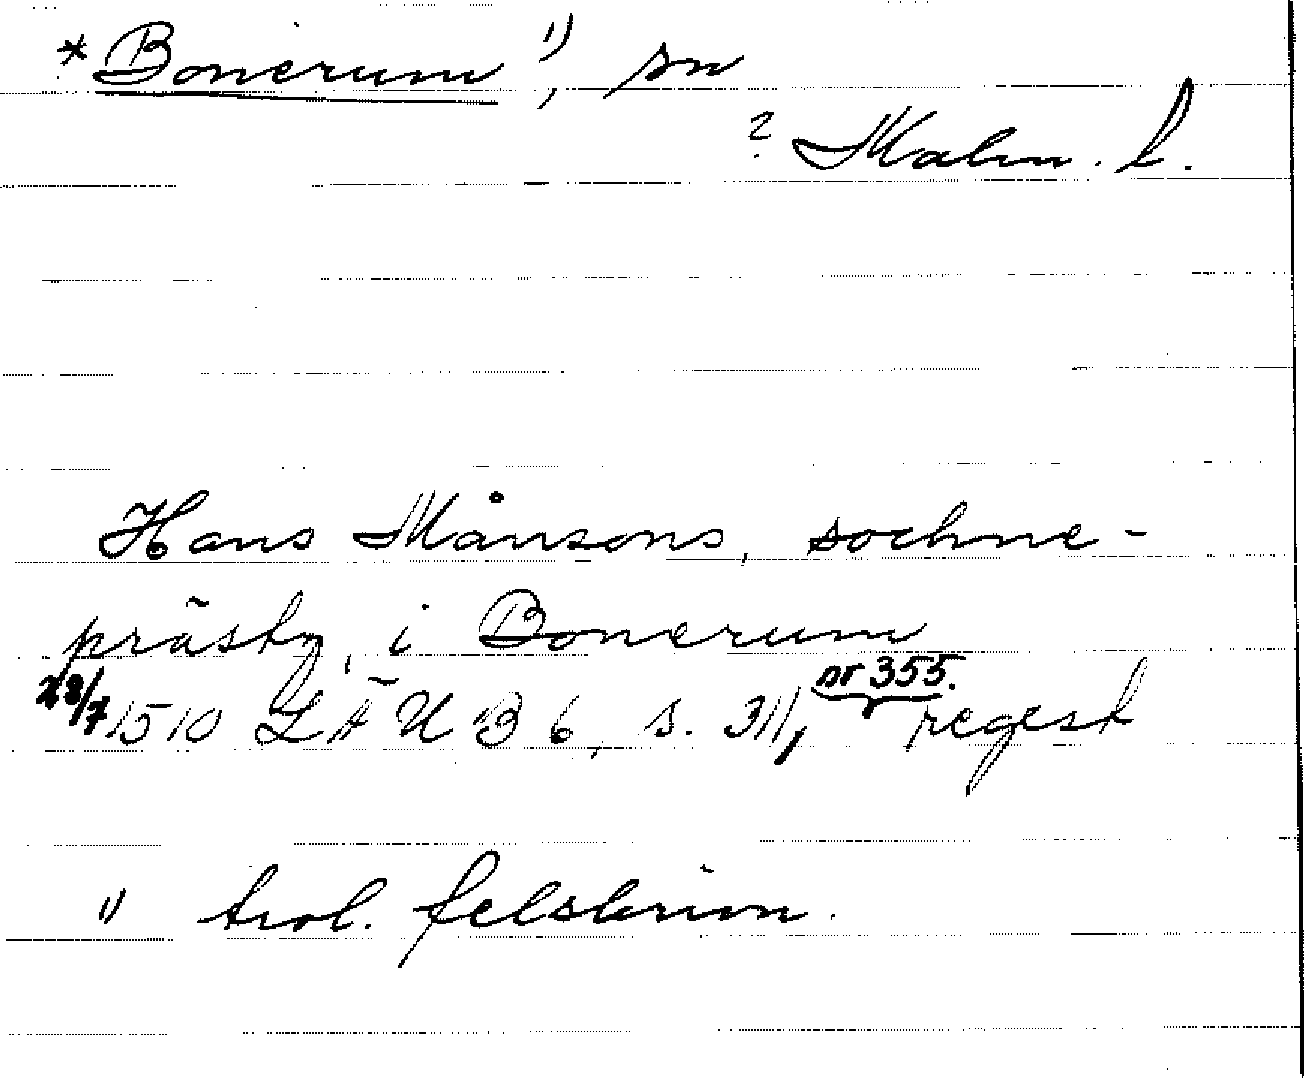 *Bonerum 1), sn
? Malm. l.
Hans Månsons, sochne-
prästz, i Bonerum
28/7 1510 LÄUB 6, s. 311, nr 355. regest
1) trol. felskrivn.